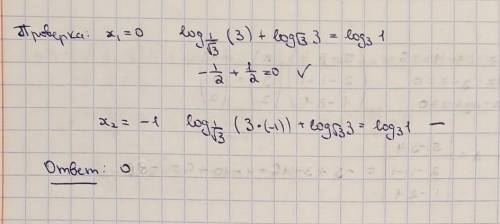 Проверка: x₁ = 0 log_{1/√3} (3) + log_{√3} 3 = log₃ 1
-1/2 + 1/2 = 0 ✓
x₂ = -1 log_{1/√3} (3·(-1)) + log_{√3} 3 = log₃ 1 —
Ответ: 0